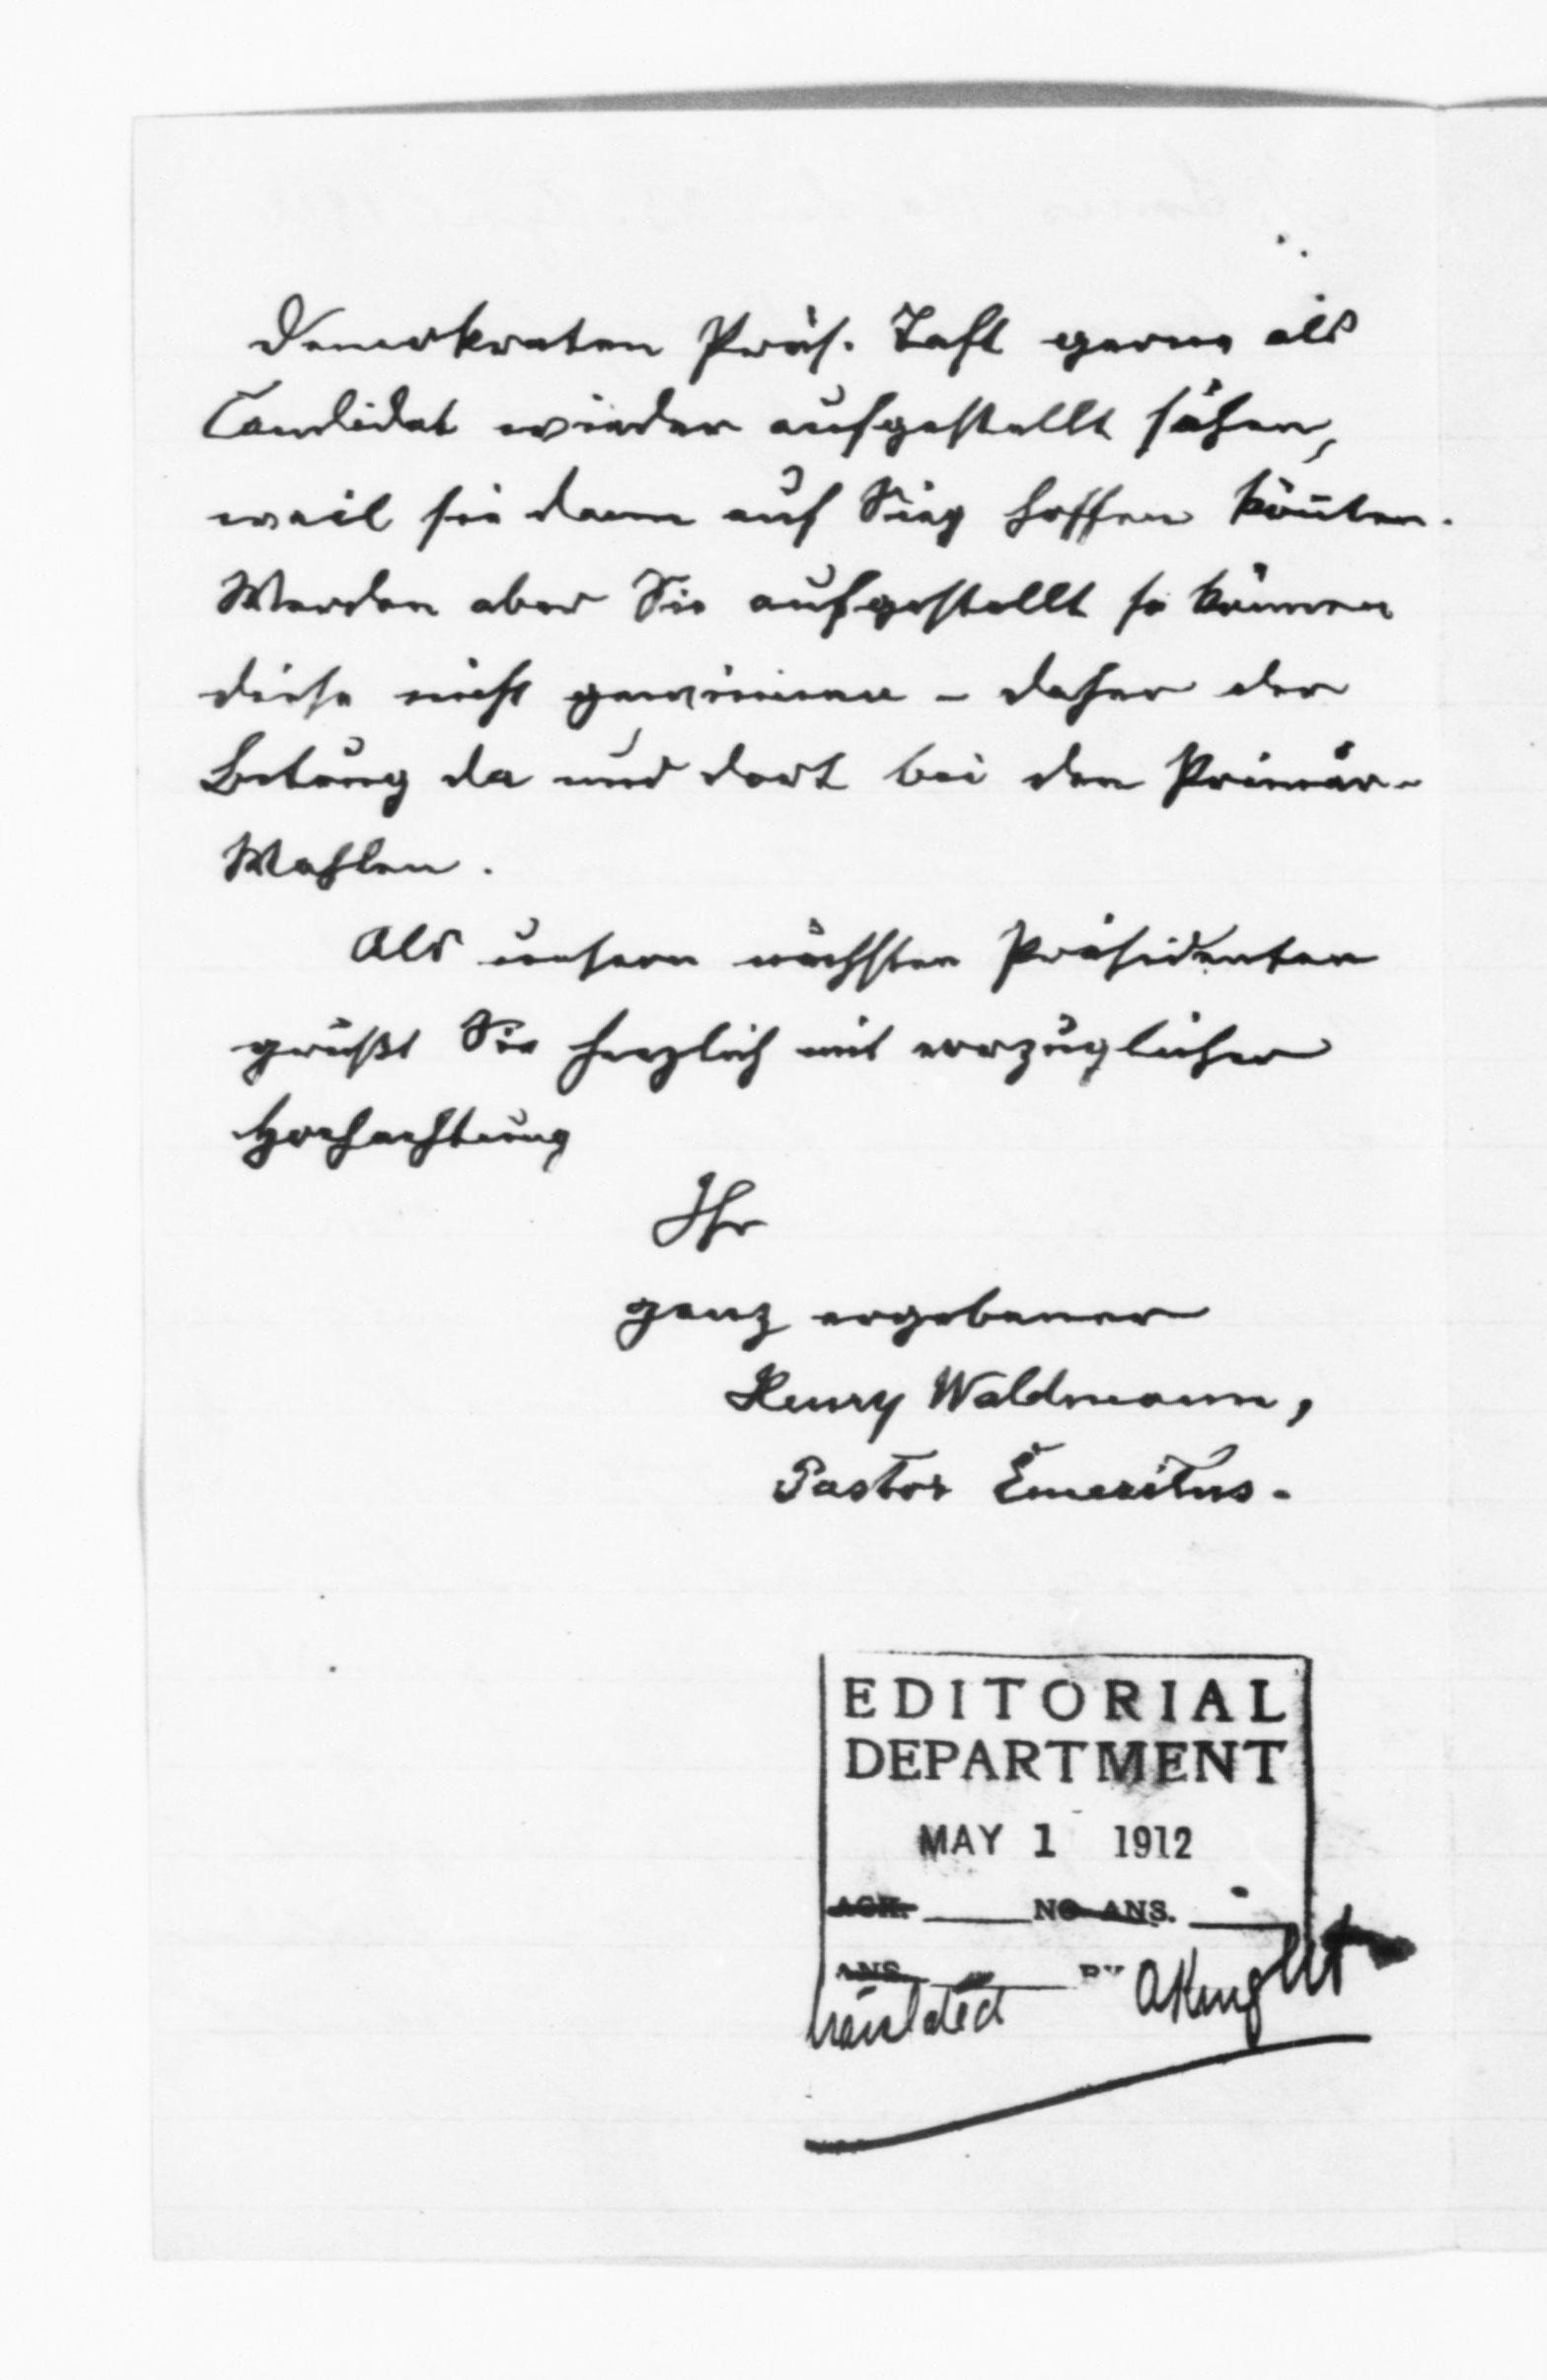 Demokraten Präs. Taft gerne als
Candidat wieder aufgestellt sähen,
weil sie dann auf Sieg hoffen kön̄ten.
Werden aber Sie aufgestellt so können
diese nicht gewinnen – daher der
Betrug da und dort bei den Primär-
Wahlen.
Als unsern nächsten Präsidenten
grüßt Sie herzlich mit vorzüglicher
Hochachtung
Ihr
ganz ergebener
Henry Waldmann,
Pastor Emeritus.
EDITORIAL
DEPARTMENT
MAY 1 1912
ACK. NO ANS.
ANS. BY